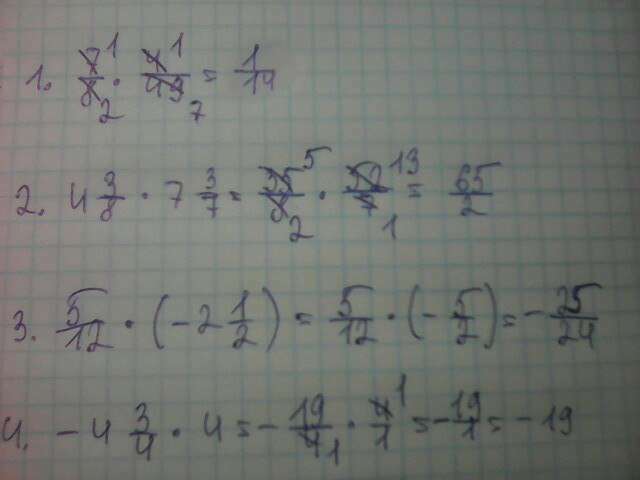 1. 7/8 · 4/49 = 1/14
2. 4 3/8 · 7 3/7 = 35/8 · 52/7 = 65/2
3. 5/12 · (-2 1/2) = 5/12 · (-5/2) = -25/24
4. -4 3/4 · 4 = -19/4 · 4/1 = -19/1 = -19